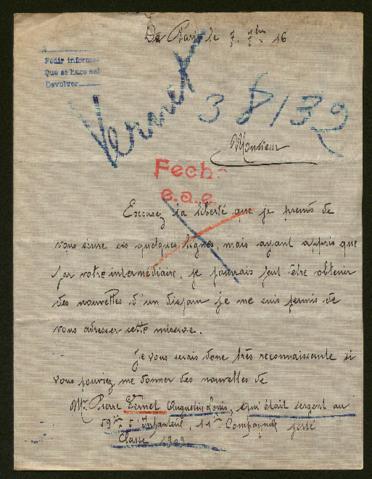 De Paris le 7 9bre 16
Pedir informes
Que se hace saber
Devolver
Vernet 38132
Monsieur
Fecha
e.a.e.
Excusez la liberté que je prends de
vous écrire ces quelques lignes mais ayant appris que
par votre intermédiaire, je pourrais peut être obtenir
des nouvelles d'un disparu je me suis permis de
vous adresser cette missive.
Je vous serais donc très reconnaissante si
vous pouviez me donner des nouvelles de
Mr Pierre Vernet Augustin Louis, qui était sergent au
59e d'Infanterie, 11e Compagnie
Classe 1903